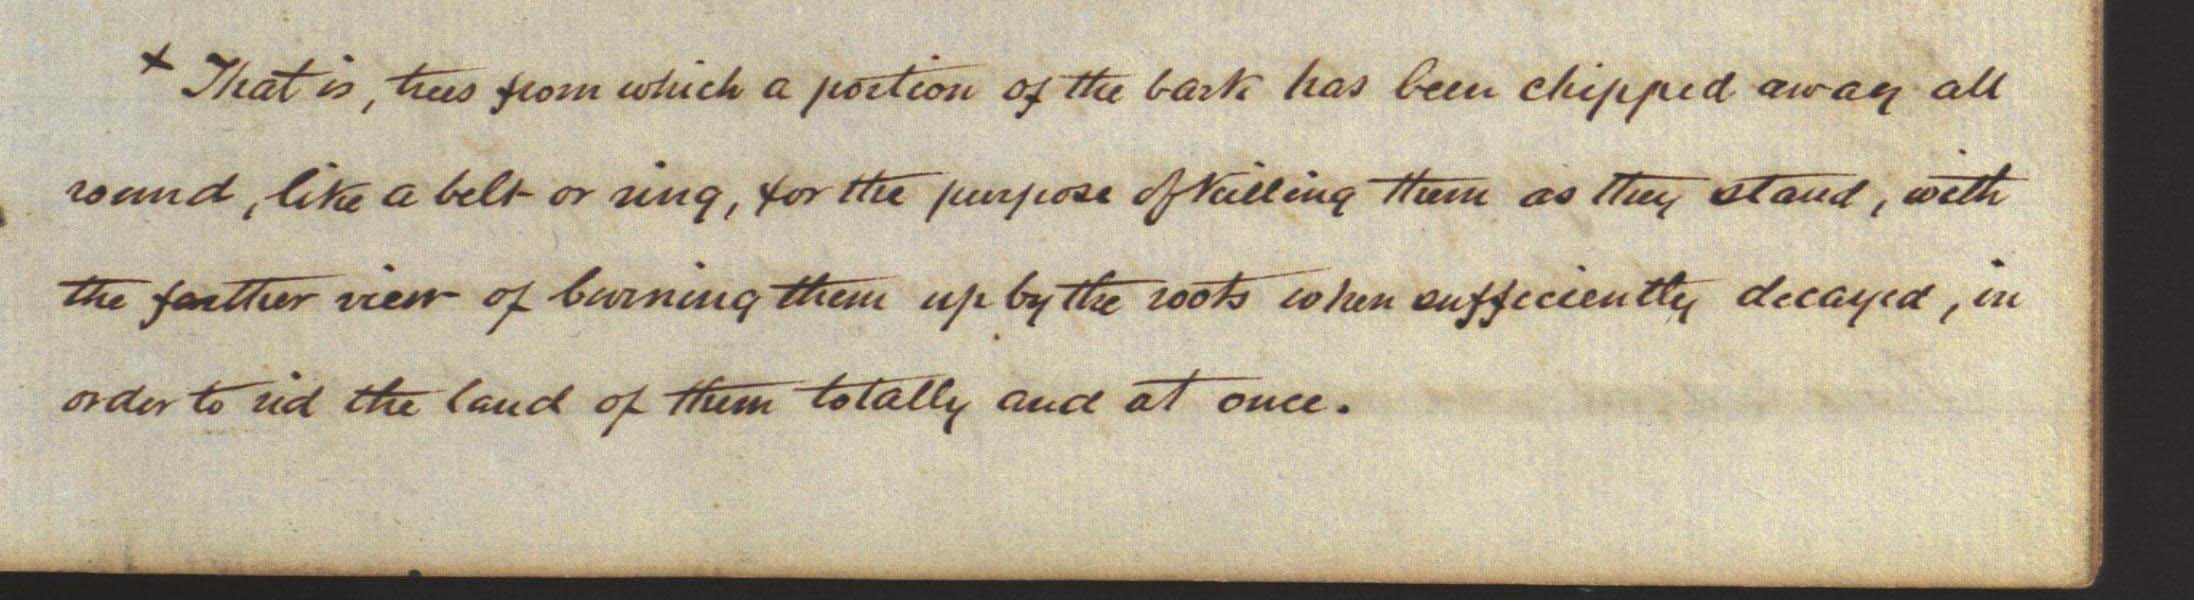 × That is, trees from which a portion of the bark has been chipped away all
round, like a belt or ring, for the purpose of killing them as they stand, with
the farther view of burning them up by the roots when sufficiently decayed, in
order to rid the land of them totally and at once.